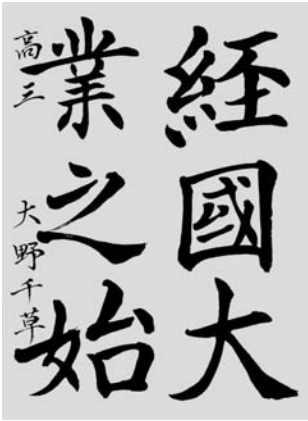 経國大
業之始
高三 大野千草